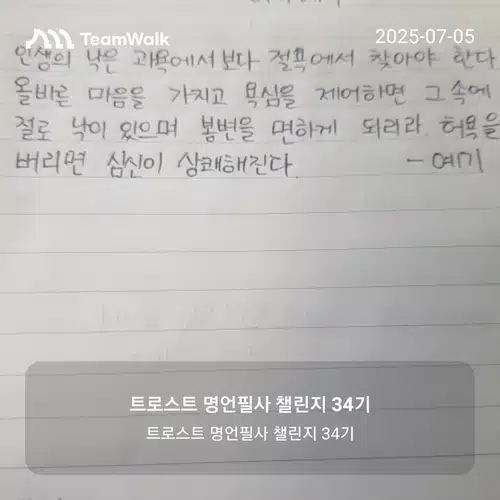 TeamWalk
2025-07-05
인생의 낙은 과욕에서보다 절욕에서 찾아야 한다
올바른 마음을 가지고 욕심을 제어하면 그 속에
절로 낙이 있으며 봉변을 면하게 되리라. 허욕을
버리면 심신이 상쾌해진다. - 예기
트로스트 명언필사 챌린지 34기
트로스트 명언필사 챌린지 34기